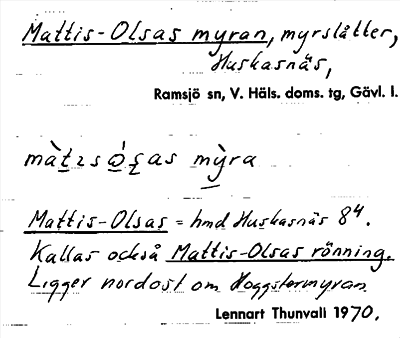 Mattis-Olsas myran, myrslåtter,
Huskasnäs,
Ramsjö sn, V. Häls. doms. tg, Gävl. l.
màtɪs ó̱ʂas mỳra
Mattis-Olsas = hmd Huskasnäs 8⁴.
Kallas också Mattis-Olsas rönning.
Ligger nordost om Hoggstermyran
Lennart Thunvall 1970.